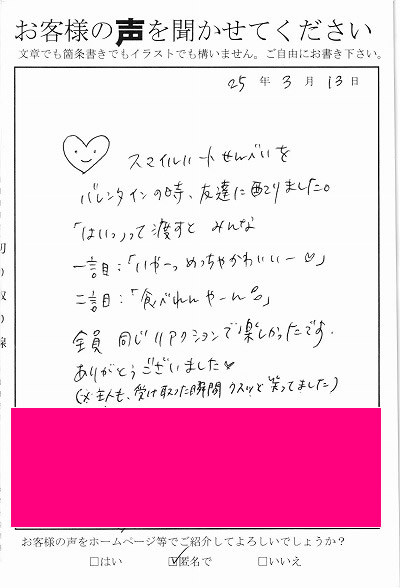 お客様の声を聞かせてください
文章でも箇条書きでもイラストでも構いません。ご自由にお書き下さい。
25 年 3 月 13 日
スマイルハートせんべいを
バレンタインの時、友達に配りました。
「はいっ」って渡すと みんな
一言目:「いやーっ めっちゃかわいいー♡」
二言目:「食べれんやーん」
全員 同じリアクションで楽しかったです。
ありがとうございました♥
(※主人も、受け取った瞬間 クスッと笑ってました)
切り取り線
お客様の声をホームページ等でご紹介してよろしいでしょうか?
□はい ☑匿名で □いいえ